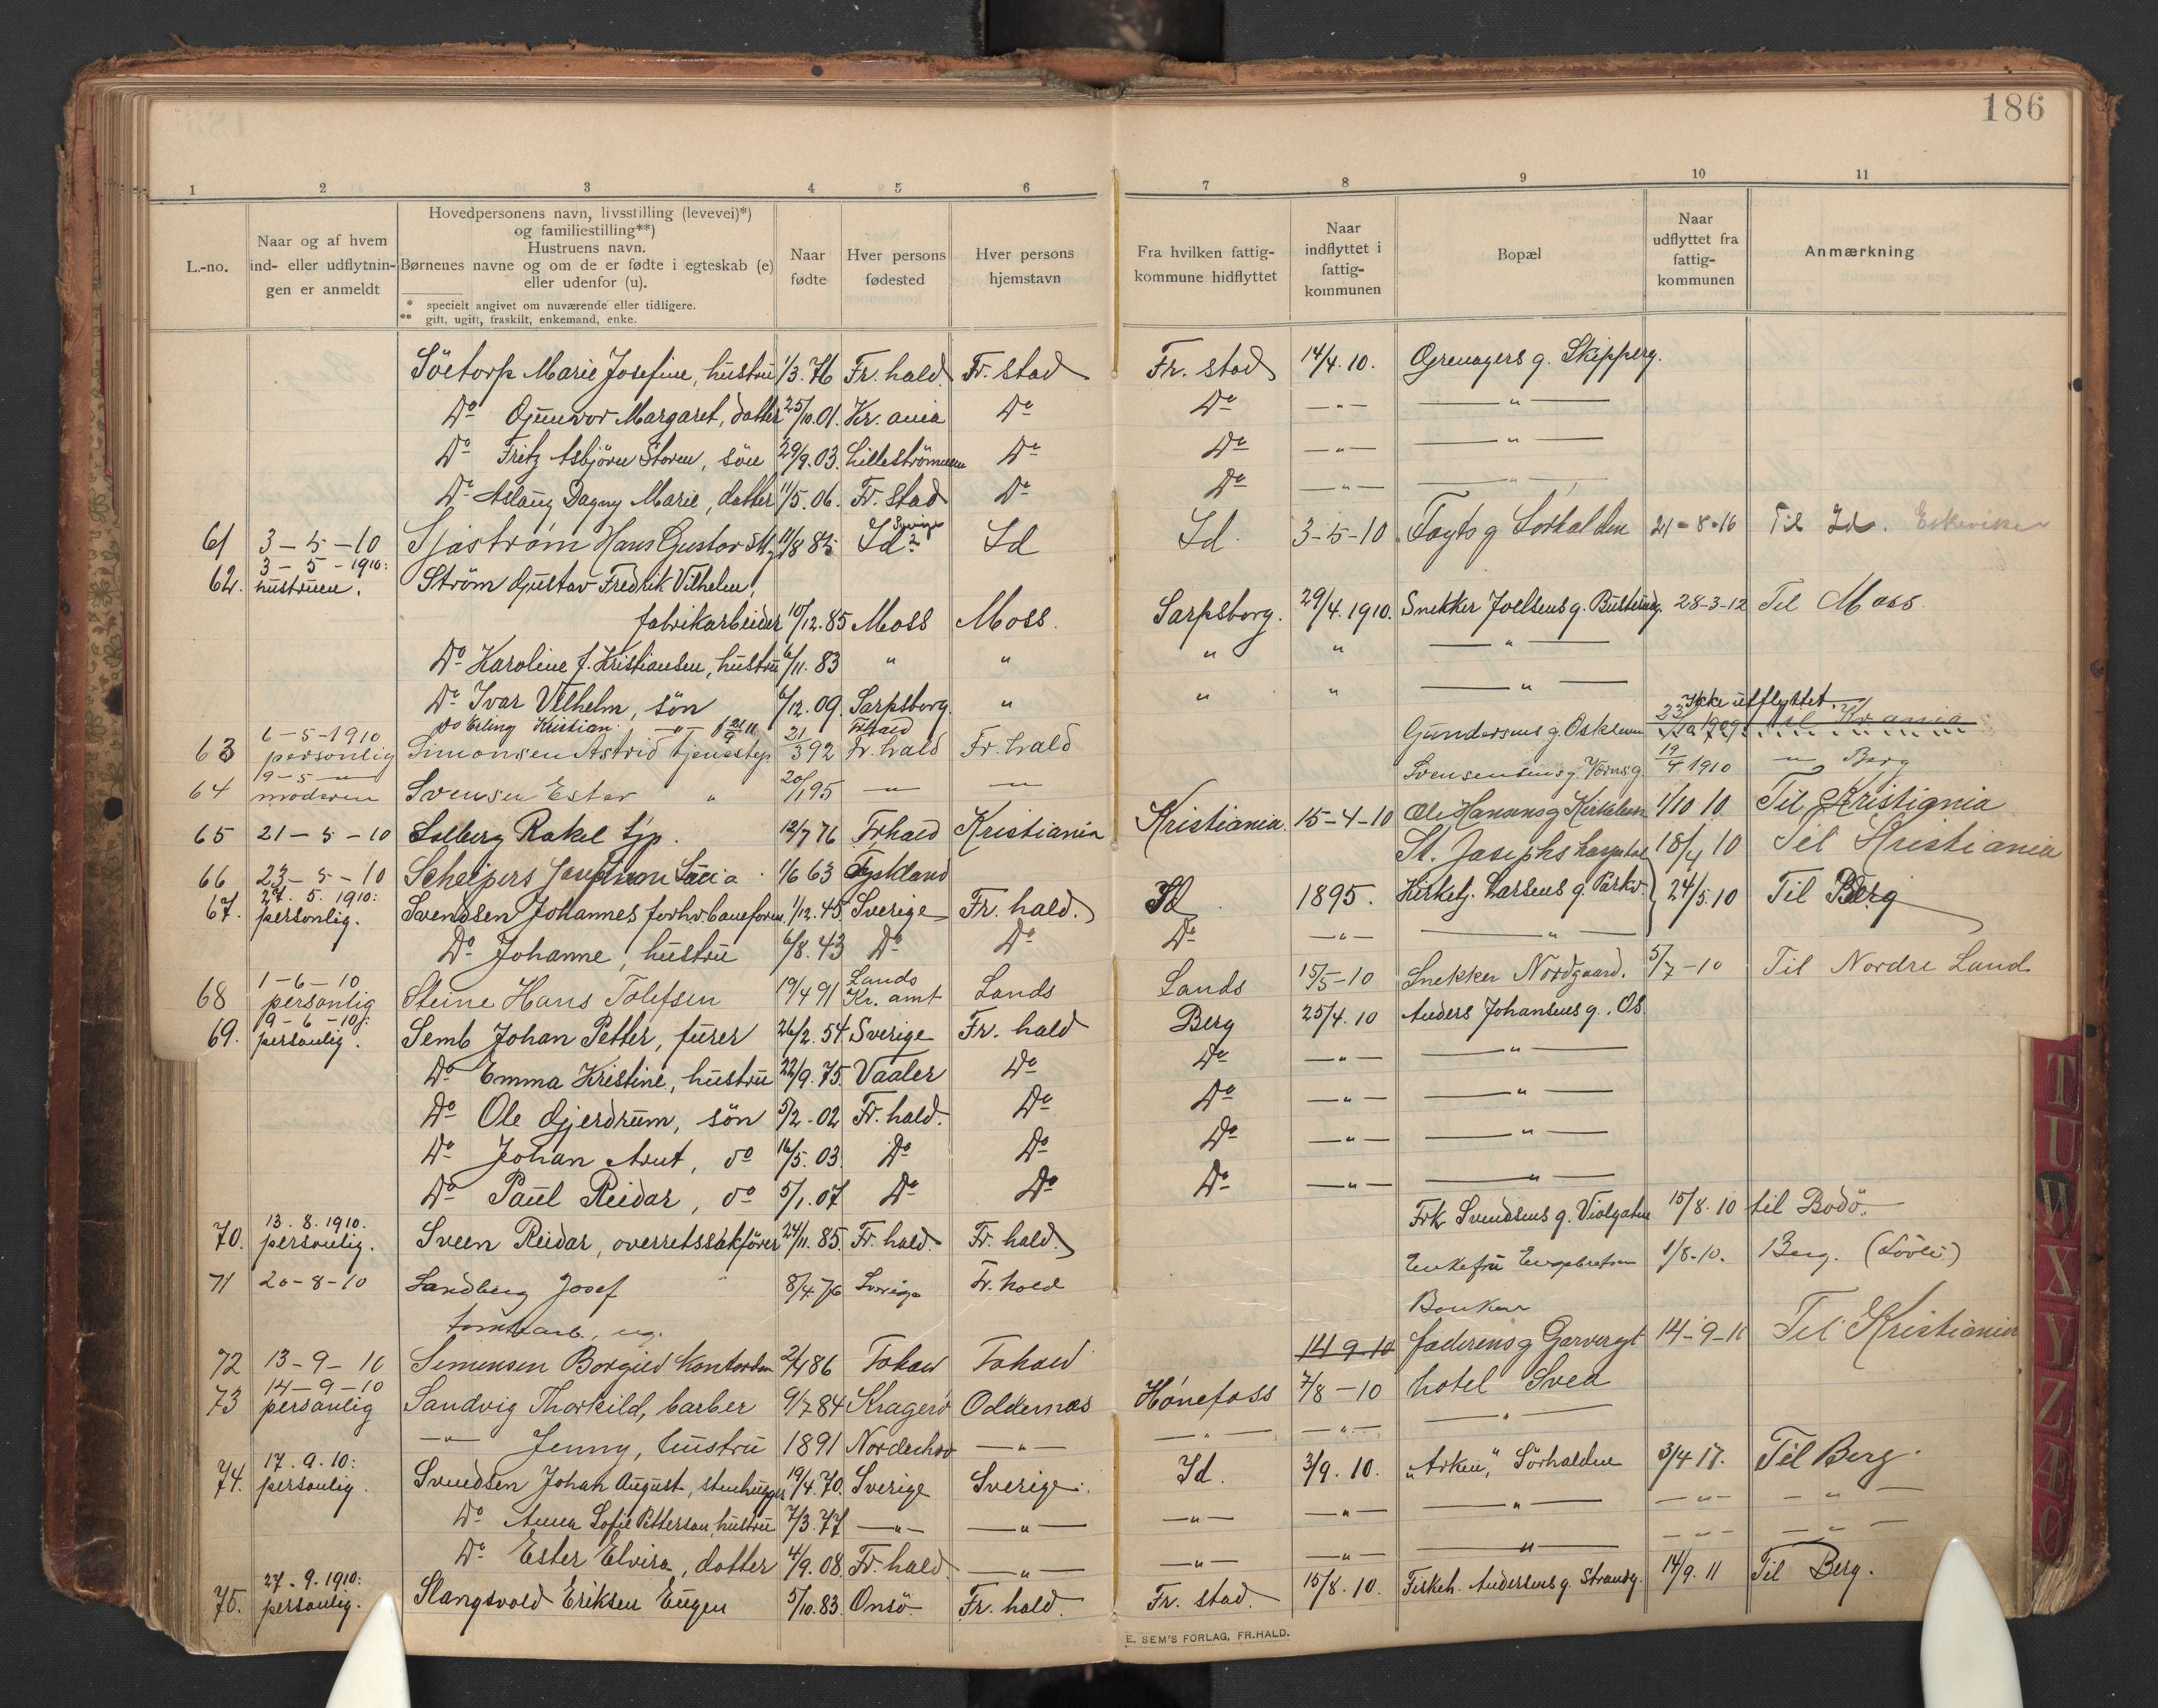 186
1 2 3 4 5 6 7 8 9 10 11
L.-no.
Naar og af hvem
ind- eller udflytnin-
gen er anmeldt
Hovedpersonens navn, livsstilling (levevei)*)
og familiestilling**)
Hustruens navn.
Børnenes navne og om de er fødte i egteskab (e)
eller udenfor (u).
* specielt angivet om nuværende eller tidligere.
** gift, ugift, fraskilt, enkemand, enke.
Naar
fødte
Hver persons
fødested
Hver persons
hjemstavn
Fra hvilken fattig-
kommune hidflyttet
Naar
indflyttet i
fattig-
kommunen
Bopæl
Naar
udflyttet fra
fattig-
kommunen
Anmærkning
Söetorp Marie Josefine, hustru 1/3.76 Fr.hald Fr.stad Fr.stad 14/4.10. Grenagers g. Skipperg.
Do Gunvor Margaret, datter 25/10.01. Kr.ania Do Do —„— —„—
Do Fritz Asbjörn Storm, sön 29/9.03. Lilleströmmen Do Do —„— —„—
Do Aslaug Dagny Marie, datter 11/5.06. Fr.stad Do Do —„— —„—
61 3-5-10 Sjøstrøm Hans Gustav 11/8 83 Id Sverige Id Id 3-5-10 Fogts g Sørhalden 21-8-16 Til Id. Eskeviken
3-5-1910:
62. hustruen. Ström Gustav Fredrik Vilhelm,
fabrikarbeider 10/12.85 Moss Moss. Sarpsborg. 29/4.1910. Snekker Joelsens g. 28-3-12 Til Moss.
Do Karoline f. Kristiansen, hustru 6/11.83 „ „ „ „ —„—
Do Ivar Vilhelm, sön 6/12.09. Sarpsborg. „ „ „ —„—
Do Erling Kristian —„— 21/9 11 Frhald Ikke utflyttet
6-5-1910
63 personlig Simonsen Astrid tjenestep 21/3 92 Fr.hald Fr.hald Gundersens g. Oskleven 1909 til Kr.ania
9-5-„
64 moderen Svensen Ester „ 20/1 95 —„— —„— Svensens g. Værnsg. 19/4 1910 —„— Berg
65 21-5-10 Solberg Rakel tjp. 12/7 76 Frhald Kristiania Kristiania. 15-4-10 Ole Hansens g 1/10 10. Til Kristiania
66 23-5-10 Scheipers Lucia 1/6 63 Tyskland St. Josephs hospital 18/4 10 Til Kristiania
27.5.1910:
67. personlig. Svendsen Johannes forhv. baneform. 1/12.45 Sverige Fr.hald. Id 1895. Kirketj. Larsens g. Parkv. 24/5.10 Til Berg
Do Johanne, hustru 6/8.43 Do Do Do —„— —„—
1-6-10
68 personlig Steine Hans Tolefsen 19/4 91 Lands Kr.amt Lands Lands 15/5-10 Snekker Nordgaard. 5/7-10 Til Nordre Land
9-6-10:
69. personlig. Semb Johan Petter, furer 26/2.54. Sverige Fr.hald Berg 25/4.10 Anders Johansens g. Os
Do Emma Kristine, hustru 22/9.75. Vaaler Do Do —„— —„—
Do Ole Gjerdrum, sön 5/2.02 Fr.hald. Do Do —„— —„—
Do Johan Arnt, do 16/5.03. Do Do Do —„— —„—
Do Paul Reidar, do 5/1.07 Do Do Do —„— —„—
13.8.1910.
70. personlig. Sveen Reidar, overretssakförer 24/11.85. Fr.hald. Fr.hald. Frk Svendsens g. Violgaten 15/8.10 til Bodö.
71 20-8-10 Sandberg Josef 8/4.76 Sverige Fr.hald Enkefru Engebretsen 1/8-10. Berg. (Lövli)
tomtearb., ug. Banken
72 13-9-10 Simensen Borgild Kontordm 2/4 86 Frhald Frhald 14 9 10 faderens g Garvergt 14-9-10 Til Kristiania
14-9-10
73 personlig Sandvig Thorkild, barber 9/7 84 Kragerö Oddernæs Hönefoss 7/8-10 hotel Svea
—„— Jenny, hustru 1891 Norderhov —„— —„— —„— —„—
17.9.10:
74. personlig. Svendsen Johan August, stenhugger 19/4.70. Sverige Sverige. Id. 3/9.10. „Arken", Sörhalden 3/4 17. Til Berg.
Do Anna Sofie Petterson, hustru 7/3.77 —„— —„— —„— —„— —„— —„— —„—
Do Ester Elvira, datter 4/9.08. Fr.hald. —„— —„— —„— —„— —„— —„—
27.9.1910:
75. personlig. Slangsvold Eriksen Eugen 5/10.83. Onsö Fr.hald. Fr.stad. 15/8.10. Fiskeh. Andersens g. Strandg. 14/9.11 Til Berg.
E. SEM'S FORLAG, FR.HALD.
T
U
W
X
Y
Z
Æ
Ø